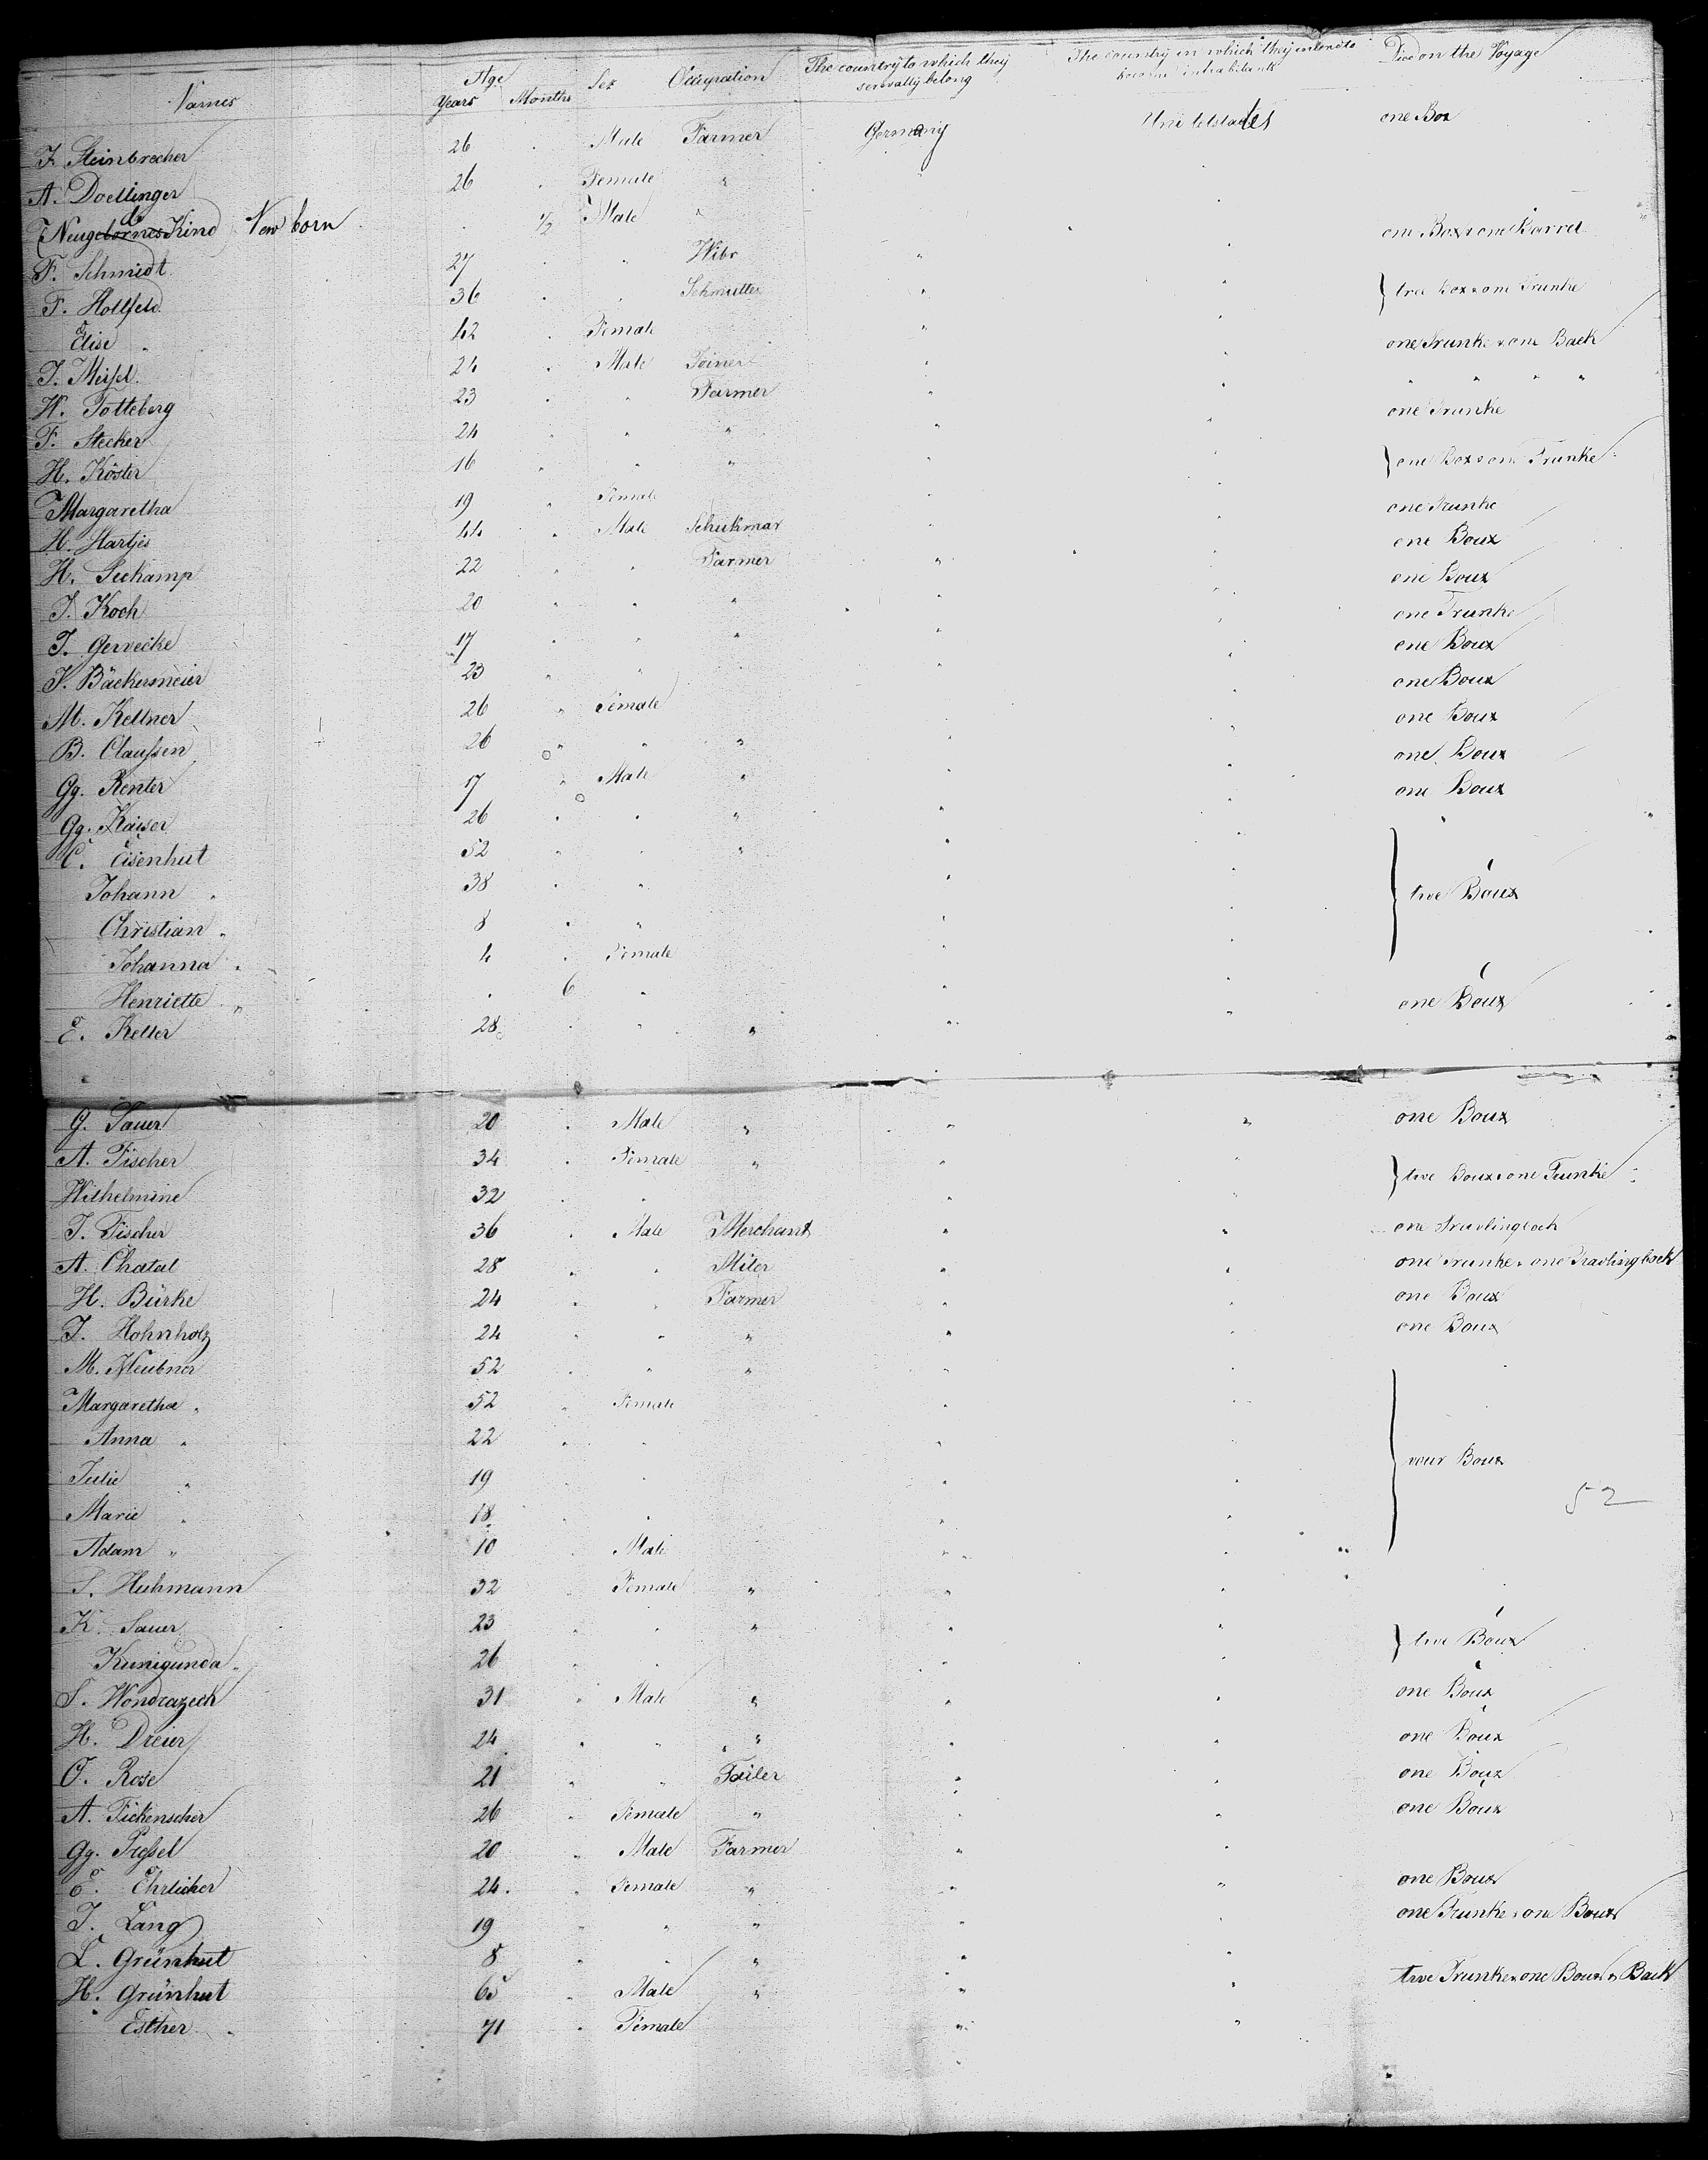 Names Age Years Months Sex Occupation The country to which they serverally belong The country in which they intend to become inhabitants Died on the Voyage
F. Steinbrecher 26 . Male Farmer Germany Unitetstates one Box
A. Doellinger 26 . Female "
Neugebornes Kind New born . 1/2 Male "
F. Schmidt 27 . " one Box & one Barrel
F. Hollfeld 36 . " } two Box & one Trunke
Elise " 42 . Female
J. Meisel 24 . Male Joiner one Trunke & one Back
W. Totteberg 23 . " Farmer " " " "
F. Stecker 24 . " " one Trunke
H. Köster 16 . " " } one Box & one Trunke
Margaretha 19 . Female
H. Hartjes 44 . Male Schukmar one Trunke
H. Seekamp 22 . " Farmer one Boux
J. Koch 20 " " " one Boux
J. Gervecke 17 . " " one Trunke
J. Bäckersmeier 23 " " one Boux
M. Kellner 26 " Female one Boux
B. Claussen 26 " " " one Boux
Gg. Renter 17 " Male " one Boux
Gg. Kaiser 26 " " " one Boux
C. Eisenhut 52 " " "
Johann " 38 . " } two Boux
Christian " 8 . "
Johanna " 4 . Female
Henriette " . 6 "
E. Keller 28 . " " one Boux
G. Sauer 20 . Male " one Boux
A. Fischer 34 . Female " } two Boux & one Trunke
Wilhelmine 32 . "
J. Fischer 36 . Male Merchant one
A. Chatal 28 " " Miler one Trunke & one
H. Bürke 24 " " Farmer one Boux
J. Hohnholz 24 " " " one Boux
M. Neubner 52 " " "
Margaretha " 52 " Female
Anna " 22 " " } vour Boux
Julie " 19 . "
Marie " 18 . " 52
Adam " 10 . Male
S. Huhmann 32 Female "
K. Sauer 23 " " " } two Boux
Kunigunda " 26 " "
S. Wondrazeck 31 " Male " one Boux
H. Dreier 24 " " " one Boux
O. Rose 21 " " Tailer one Boux
A. Fickenscher 26 " Female " one Boux
Gg. Pussel 20 " Male Farmer
E. Ehrlicher 24 . " Female " one Boux
J. Lang 19 " " " one Trunke & one Boux
L. Grünhut 8 " " "
H. Grünhut 65 " Male " two Trunke & one Boux & Back
Esther " 71 . Female